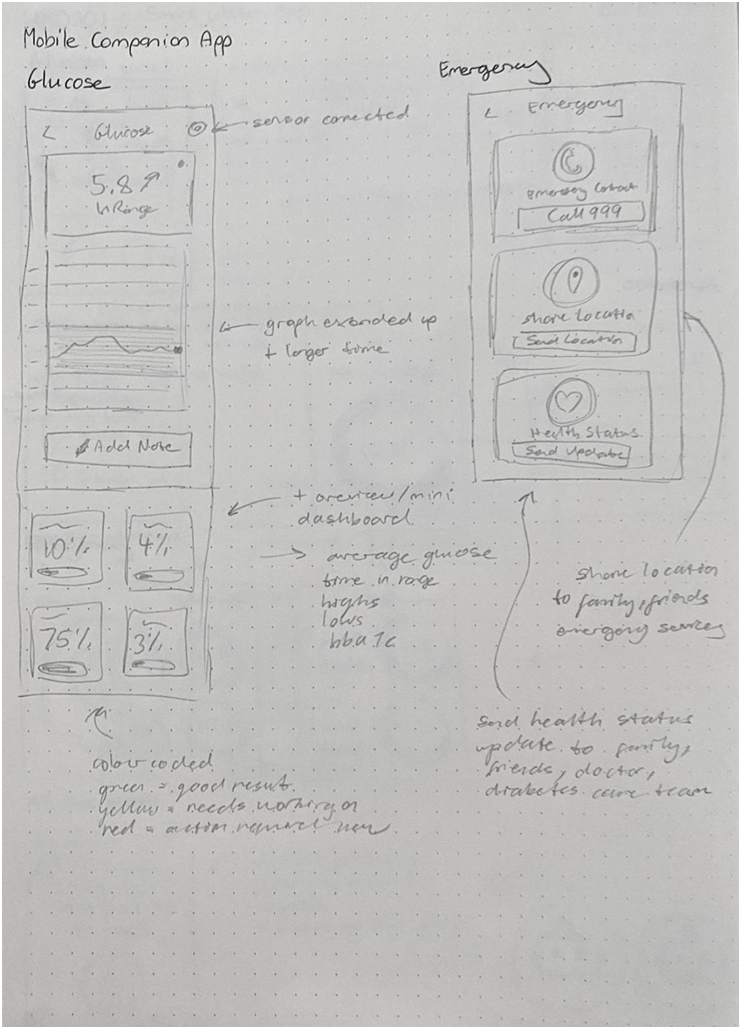 Mobile Companion App
Glucose
< Glucose
sensor conected
5.8
In Range
graph extended up
+ longer time
Add Note
10%
4%
75%
3%
+ overview/mini
dashboard
average glucose
time in range
highs
lows
hba1c
colour coded
green = good result
yellow = needs working on
red = action required now
Emergency
< Emergency
Emergency Contact
Call 999
Share Location
Send Location
Health Status
Send Update
share location
to family, friends
emergency services
send health status
update to family,
friends, doctor,
diabetes care team